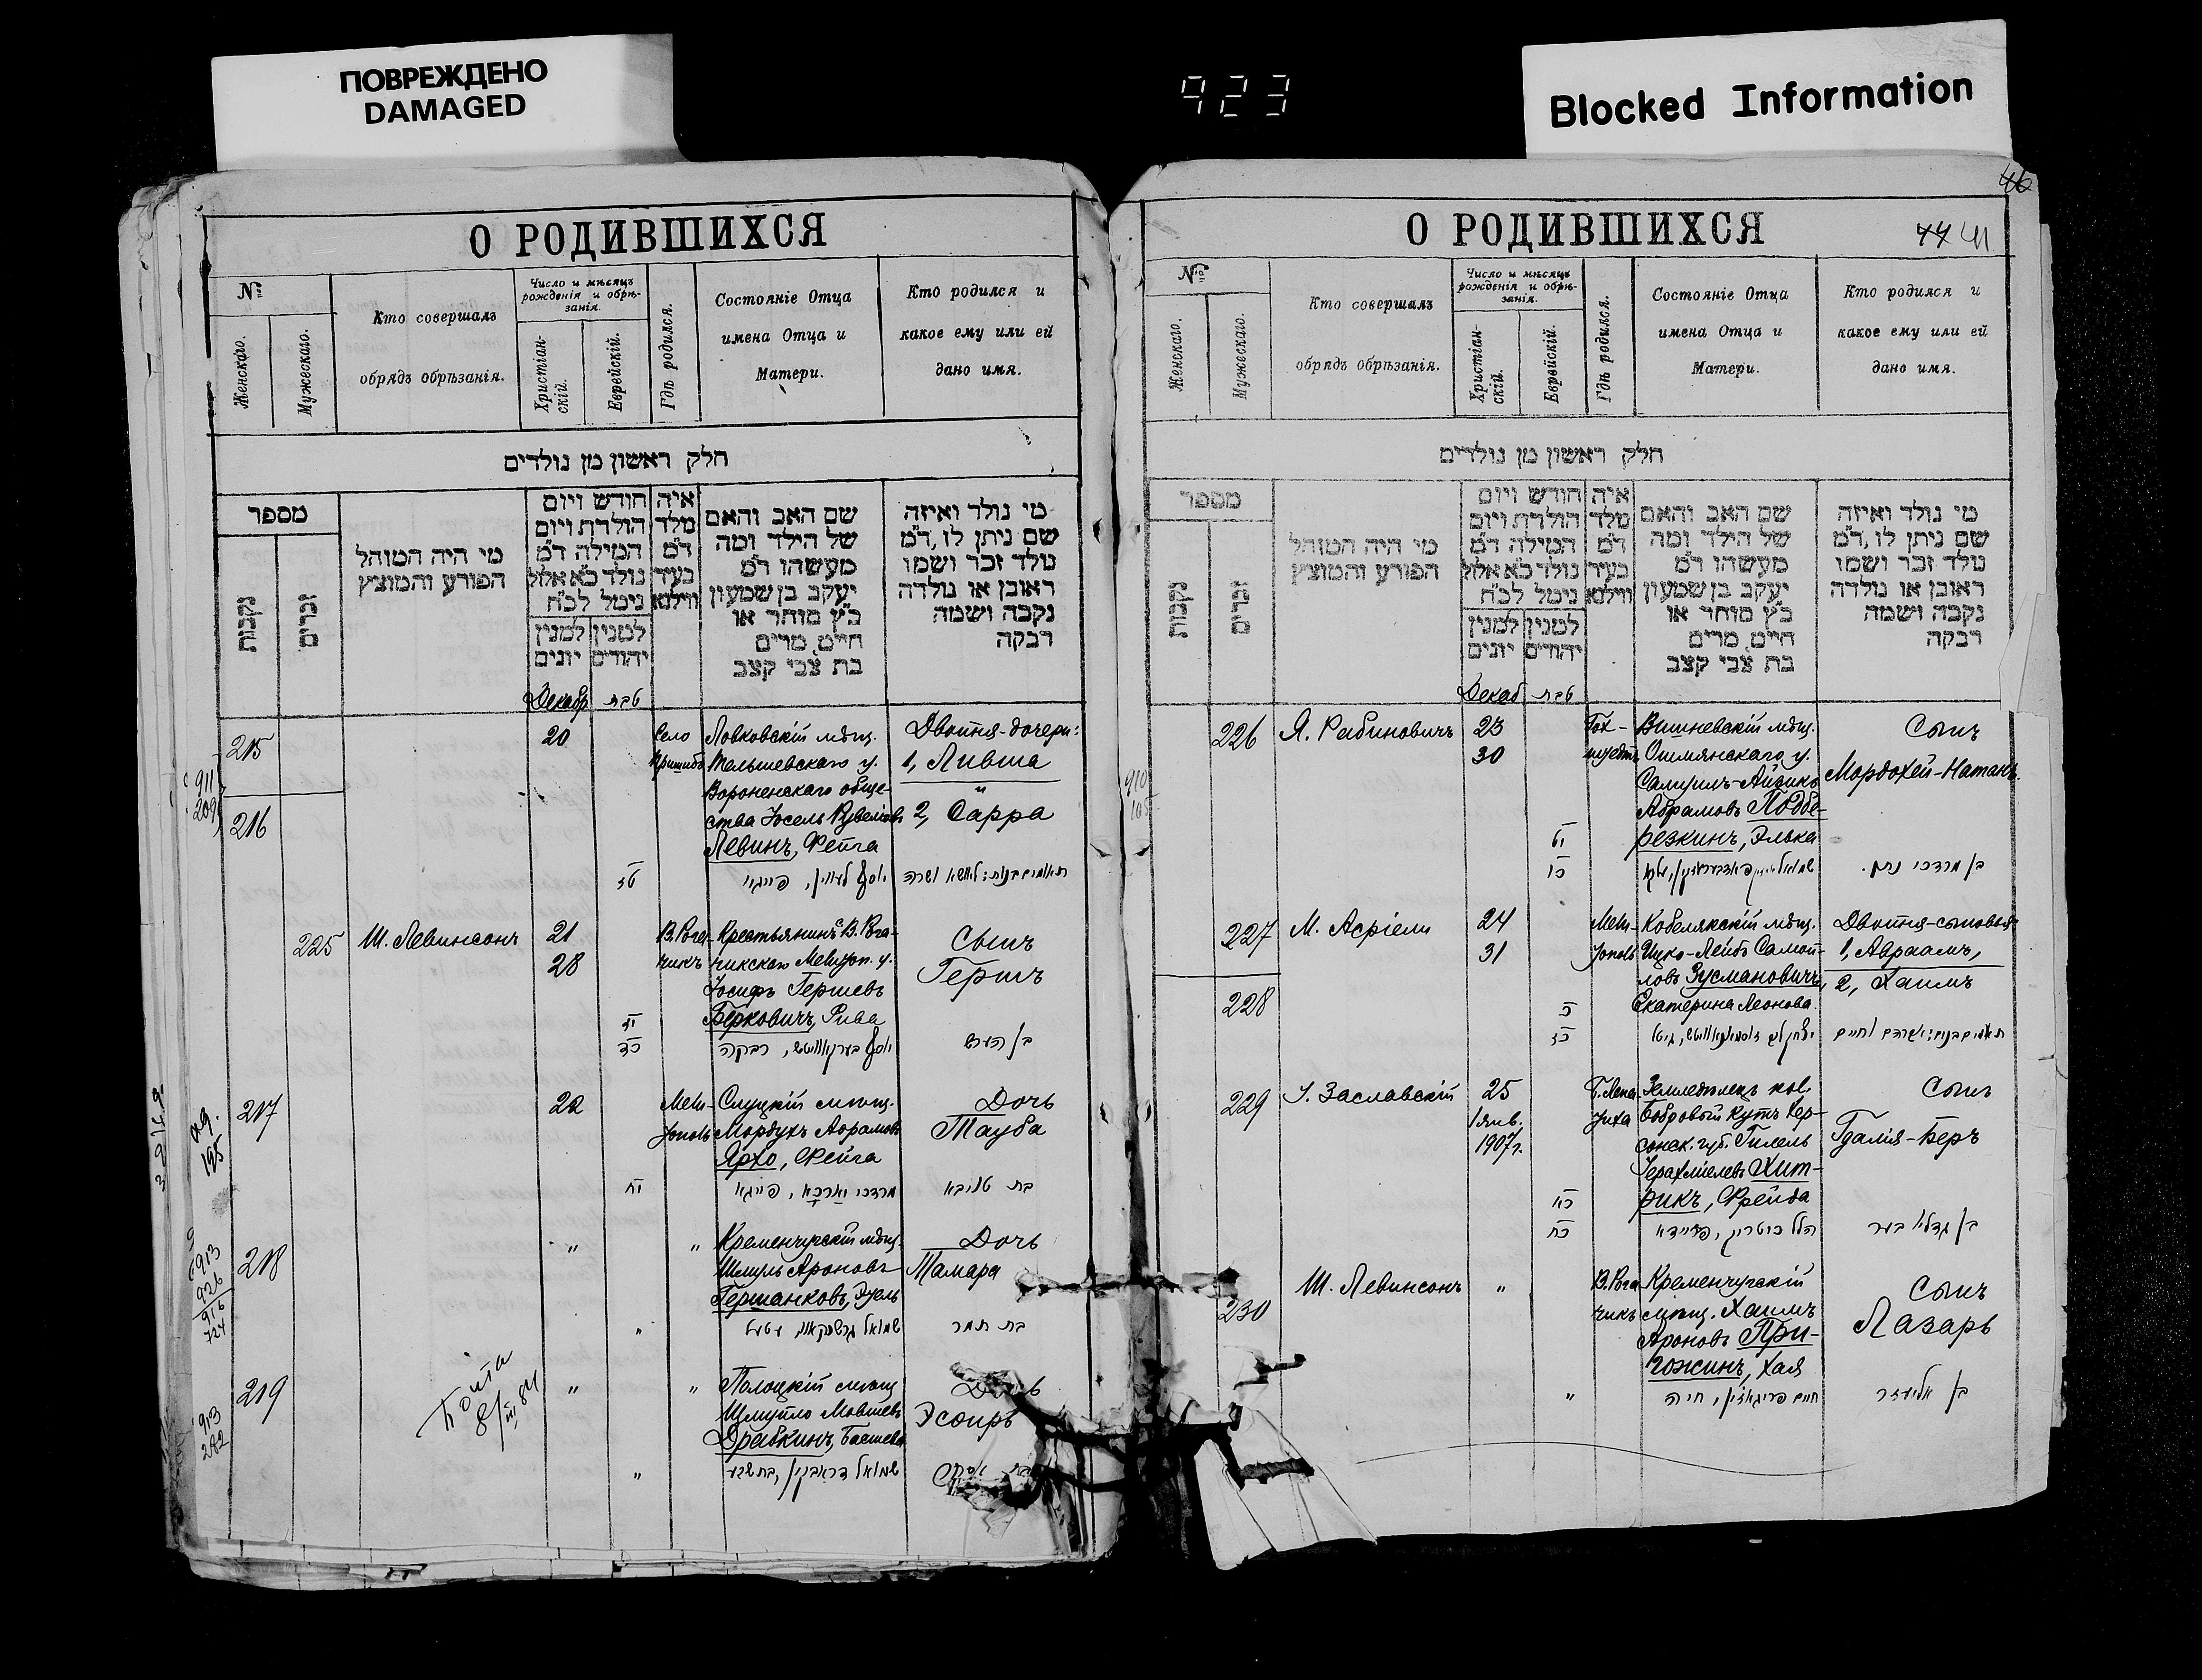 ПОВРЕЖДЕНО
DAMAGED
923
Blocked Information
46
О РОДИВШИХСЯ
№
Женскаго.
Мужескаго.
Кто совершалъ
обрядъ обрѣзанія.
Число и мѣсяцъ
рожденія и обрѣ-
занія.
Христіан-
скій.
Еврейскій.
Гдѣ родился.
Состояніе Отца
имена Отца и
Матери.
Кто родился и
какое ему или ей
дано имя.
חלק ראשון מן נולדים
מספר
נקבות
זכרים
מי היה המוהל
הפורע והמוצץ
חודש ויום
הולדת ויום
המילה ד״מ
נולד כ״א אלול
נימל לכ״ח
למנין
יונים
למנין
יהודים
איה
מלד
ד״מ
בעיר
ווילנא
שם האב והאם
של הילד ומה
מעשהו ד״מ
יעקב בן שמעון
כ״ץ סוחר או
חיים, מרים
בת צבי קצב
מי נולד ואיזה
שם ניתן לו, ד״מ
נולד זכר ושמו
ראובן או נולדה
נקבה ושמה
רבקה
Декабр
טבת
215
216
911
209
20
Село
Пришибъ
Ловковскій мѣщ.
Тельшевскаго у.
Вороненскаго обще-
ства Іосель Рувеліовъ
Левинъ, Фейга
Двойня-дочери:
1, Ливша
2, Сарра
טז
יוסף לעווין, פייגא
תאומים בנות: ליוושא ושרה
225
Ш. Левинсонъ
21
28
В. Рога-
чикъ
Крестьянинъ В. Рога-
чикскаго Мелитоп. у.
Іосифъ Гершевъ
Берковичъ, Рива
Сынъ
Гершъ
יז
כד
יוסף בערקאוויטש, רבקה
בן הערש
217
195
22
Мели-
тополь
Слуцкій мѣщ.
Мордухъ Абрамовъ
Ярхо, Фейга
Дочь
Тауба
יח
מרדכי יארכא, פייגא
בת טויבא
218
913
926
916
724
"
"
Кременчугскій мѣщ.
Шмуль Ароновъ
Гершанковъ, Этель
Дочь
Тамара
"
שמואל גרשנקאוו, עטעל
בת תמר
219
913
282
"
"
Полоцкій мѣщ
Шмуйло Мовшевъ
Драбкинъ, Башева
Дочь
Эсѳирь
"
שמואל דראבקין, בת שבע
О РОДИВШИХСЯ
44 41
№
Женскаго.
Мужескаго.
Кто совершалъ
обрядъ обрѣзанія.
Число и мѣсяцъ
рожденія и обрѣ-
занія.
Христіан-
скій.
Еврейскій.
Гдѣ родился.
Состояніе Отца
имена Отца и
Матери.
Кто родился и
какое ему или ей
дано имя.
חלק ראשון מן נולדים
מספר
נקבות
זכרים
מי היה המוהל
הפורע והמוצץ
חודש ויום
הולדת ויום
המילה ד״מ
נולד כ״א אלול
נימל לכ״ח
למנין
יונים
למנין
יהודים
איה
מלד
ד״מ
בעיר
ווילנא
שם האב והאם
של הילד ומה
מעשהו ד״מ
יעקב בן שמעון
כ״ץ סוחר או
חיים, מרים
בת צבי קצב
מי נולד ואיזה
שם ניתן לו, ד״מ
נולד זכר ושמו
ראובן או נולדה
נקבה ושמה
רבקה
Декаб
טבת
226
Я. Рабиновичъ
23
30
Вишневскій мѣщ.
Ошмянскаго у.
Самуилъ-Айзикъ
Абрамовъ Подбе-
резкинъ, Элька
Сынъ
Мордохей-Натанъ.
יט
כו
בן מרדכי נתן.
227
228
М. Асріели
24
31
Мели-
тополь
Кобелякскій мѣщ.
Ицко-Лейбъ Самой-
ловъ Зусмановичъ,
Екатерина Леонова.
Двойня-сыновья
1, Авраамъ,
2, Хаимъ
כ
כז
תאומים בנים: אברהם וחיים
229
І. Заславскій
25
1 янв.
1907 г.
Б. Лепа
тиха
Земледѣлецъ кол.
Бобровый Кутъ Хер-
сонск. губ. Гилель
Іерахміелевъ Хит-
рикъ, Фрейда
Сынъ
Гдалія-Беръ
כא
כח
הלל כיטריק, פריידא
בן גדלי׳ בער
230
Ш. Левинсонъ
"
В. Рога
чикъ
Кременчугскій
мѣщ. Хаимъ
Ароновъ При-
гожинъ, Хая
Сынъ
Лазарь
"
חיים פריגאזין, חיה
בן אליעזר